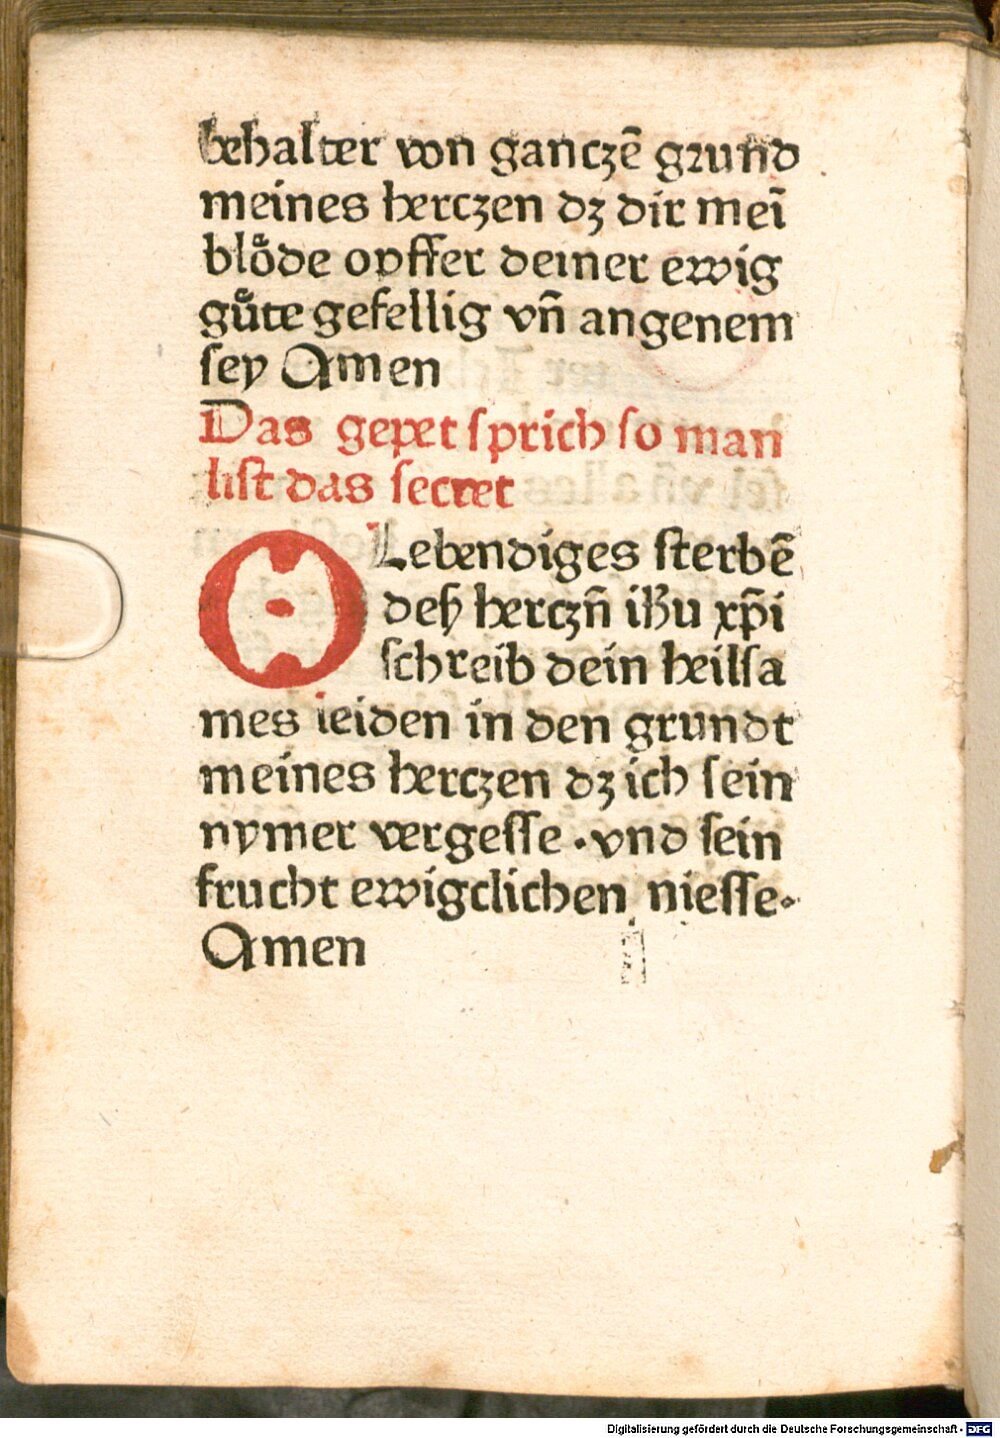 behalter von ganczē grund
meines herczen dz dir meī
bloͤde opffer deiner ewig
guͤte gefellig vn̄ angenem
ſey Amen
Das gepet ſprich ſo man
liſt das ſecret
O Lebendiges ſterbē
deſz herczn̄ ihū xp̄i
ſchreib dein heilſa
mes leiden in den grundt
meines herczen dz ich ſein
nymer vergeſſe · vnd ſein
frucht ewigclichen nieſſe·
Amen
Digitalisierung gefördert durch die Deutsche Forschungsgemeinschaft - DFG